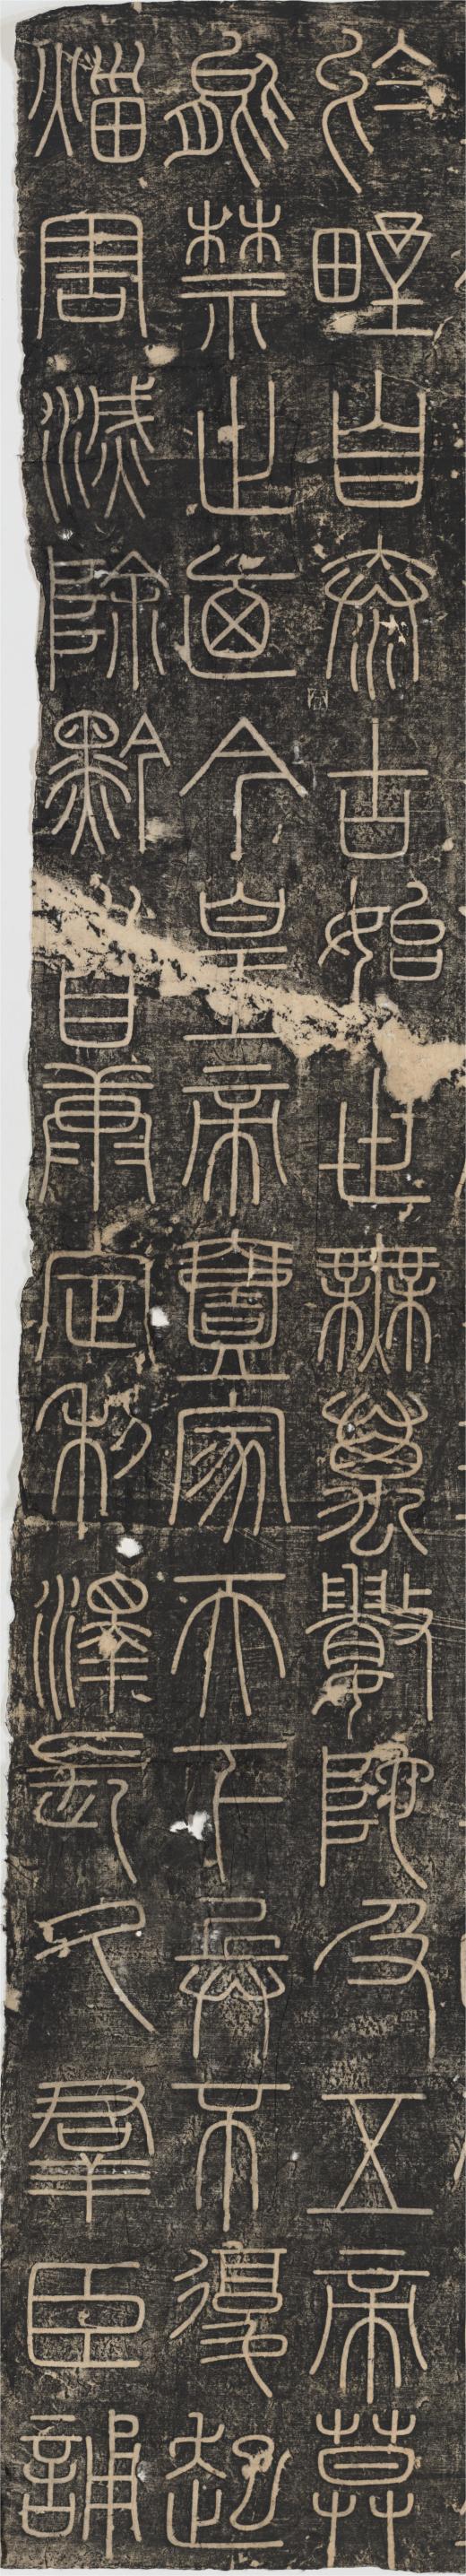 於野自泰古始世無萬數陀及五帝莫
能禁止廼今皇帝壹家天下兵不復起
災害滅除黔首康定利澤長久群臣誦